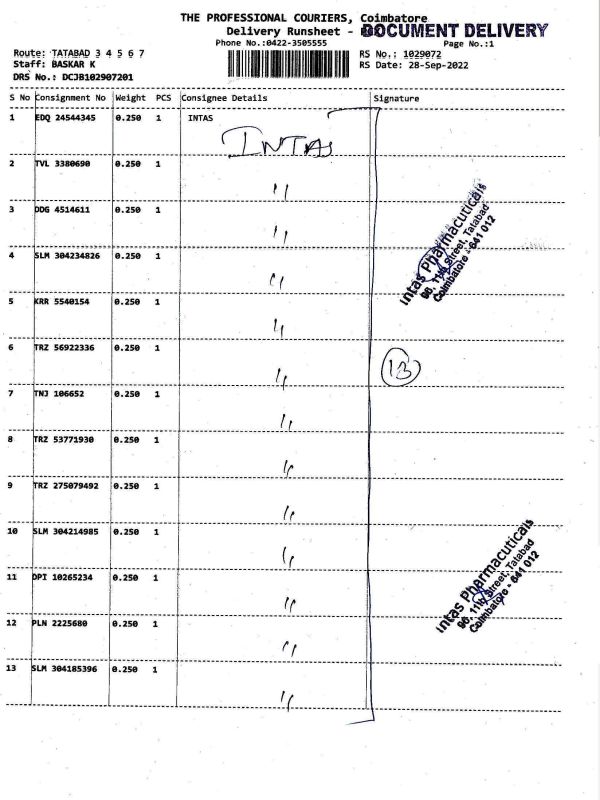 THE PROFESSIONAL COURIERS, Coimbatore
Delivery Runsheet - DOCUMENT DELIVERY
Phone No.:0422-3505555
Page No.:1
Route: TATABAD 3 4 5 6 7
RS No.: 1029072
Staff: BASKAR K
RS Date: 28-Sep-2022
DRS No.: DCJB102907201
S No Consignment No Weight PCS Consignee Details Signature
1 EDQ 24544345 0.250 1 INTAS
INTAS
2 TVL 3380690 0.250 1
"
3 DDG 4514611 0.250 1
"
4 SLM 304234826 0.250 1
"
5 KRR 5540154 0.250 1
"
6 TRZ 56922336 0.250 1
"
7 TNJ 106652 0.250 1
"
8 TRZ 53771930 0.250 1
"
9 TRZ 275079492 0.250 1
"
10 SLM 304214985 0.250 1
"
11 DPI 10265234 0.250 1
"
12 PLN 2225680 0.250 1
"
13 SLM 304185396 0.250 1
"
Intas Pharmacuticals
96, 11th Street, Tatabad
Coimbatore - 641 012
13
Intas Pharmacuticals
96, 11th Street, Tatabad
Coimbatore - 641 012